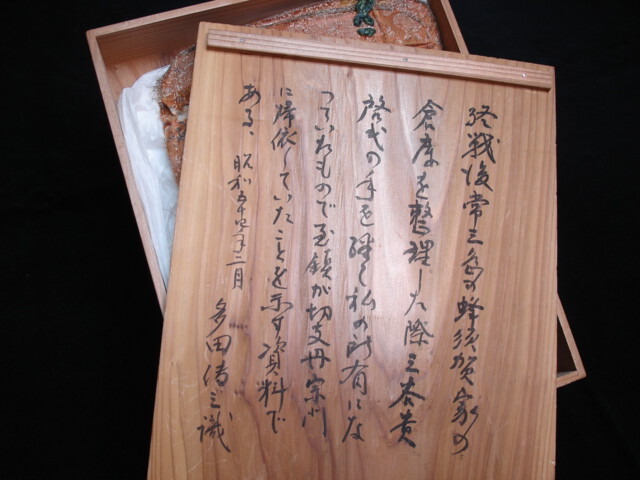 終戦後常三島の蜂須賀家の
倉庫を整理した際三谷貴
啓氏の手を経て私の所有にな
っていたもので至鎮が切支丹宗門
に帰依していたことを示す資料で
ある、昭和五十四年二月
多田傳三識